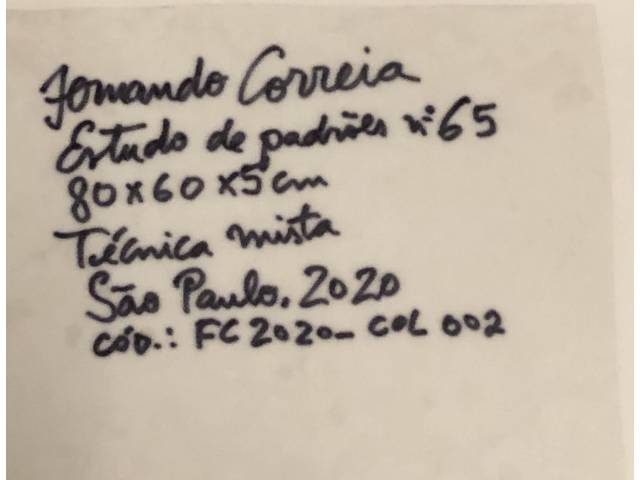 Fernando Correia
Estudo de padrões nº 65
80 x 60 x 5 cm
Técnica mista
São Paulo, 2020
CÓD.: FC 2020_ COL 002